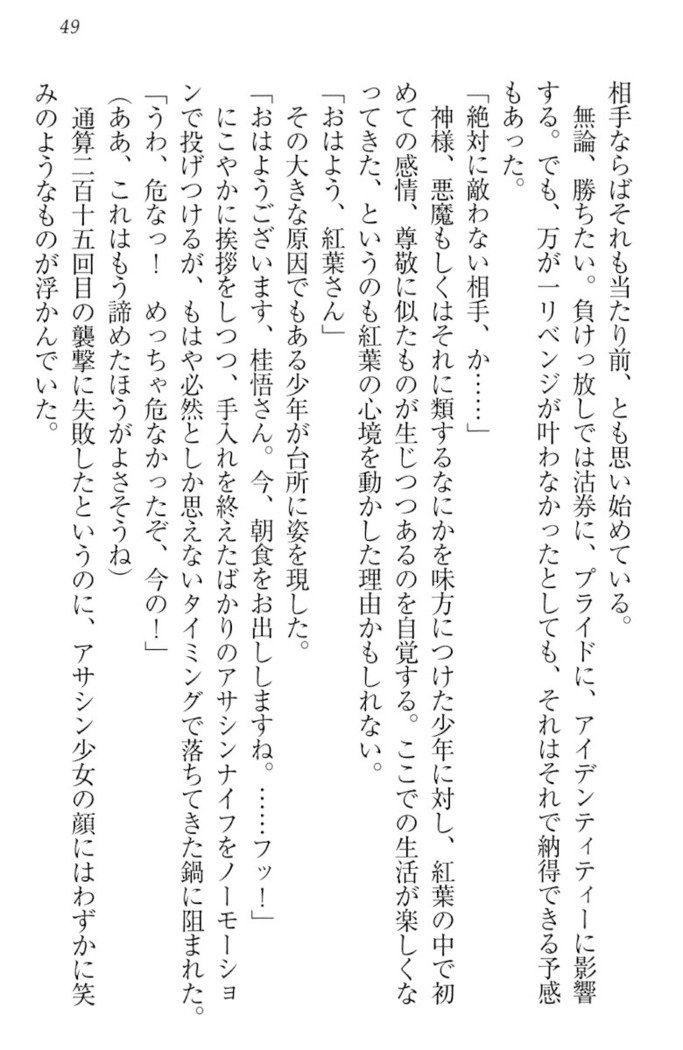 49
相手ならばそれも当たり前、とも思い始めている。
無論、勝ちたい。負けっ放しでは沽券に、プライドに、アイデンティティーに影響
する。でも、万が一リベンジが叶わなかったとしても、それはそれで納得できる予感
もあった。
「絶対に敵わない相手、か……」
神様、悪魔もしくはそれに類するなにかを味方につけた少年に対し、紅葉の中で初
めての感情、尊敬に似たものが生じつつあるのを自覚する。ここでの生活が楽しくな
ってきた、というのも紅葉の心境を動かした理由かもしれない。
「おはよう、紅葉さん」
その大きな原因でもある少年が台所に姿を現した。
「おはようございます、桂悟さん。今、朝食をお出ししますね。……フッ！」
にこやかに挨拶をしつつ、手入れを終えたばかりのアサシンナイフをノーモーショ
ンで投げつけるが、もはや必然としか思えないタイミングで落ちてきた鍋に阻まれた。
「うわ、危なっ！　めっちゃ危なかったぞ、今の！」
（ああ、これはもう諦めたほうがよさそうね）
通算二百十五回目の襲撃に失敗したというのに、アサシン少女の顔にはわずかに笑
みのようなものが浮かんでいた。